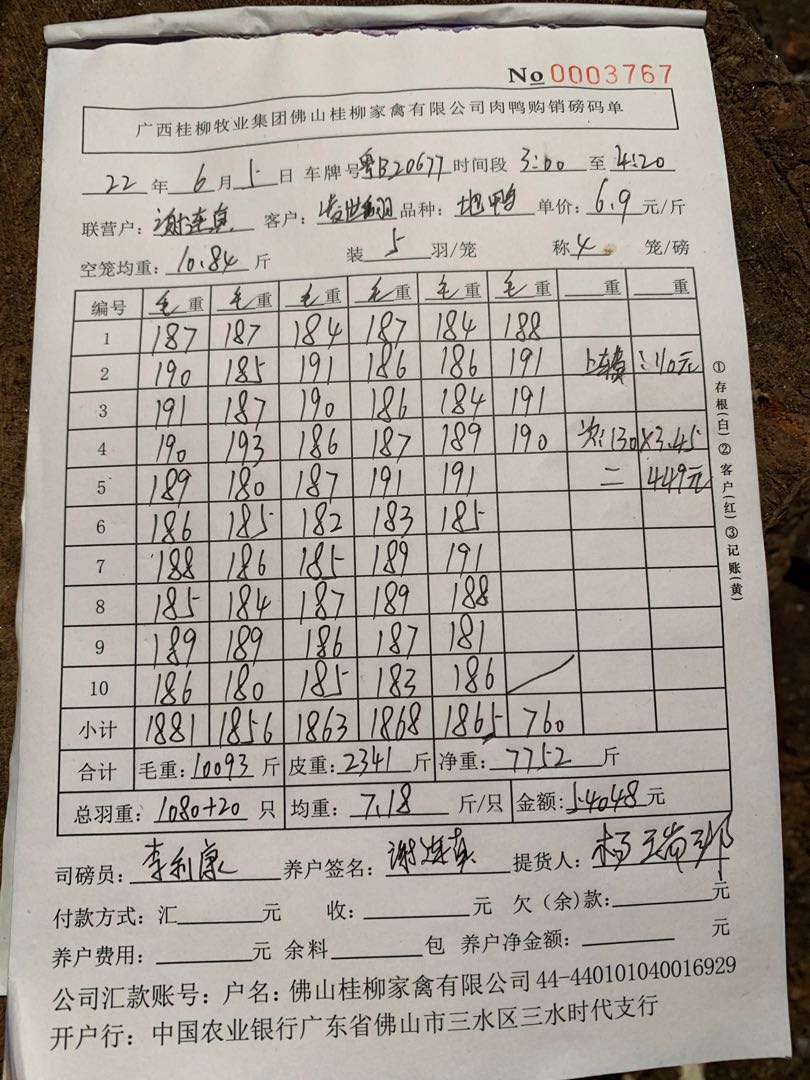 No 0003767
广西桂柳牧业集团佛山桂柳家禽有限公司肉鸭购销磅码单
22 年 6 月 5 日 车牌号 粤B20677 时间段 3:00 至 4:20
联营户: 谢连真 客户: 品种: 地鸭 单价: 6.9 元/斤
空笼均重: 10.84 斤 装 5 羽/笼 称 4 笼/磅
编号 毛重 毛重 毛重 毛重 毛重 毛重 重 重
1 187 187 184 187 184 188
2 190 185 191 186 186 191 上车费: 110元
3 191 187 190 186 184 191
4 190 193 186 187 189 190 次: 130×3.45
5 189 180 187 191 191 = 449元
6 186 185 182 183 185
7 188 186 185 189 191
8 185 184 187 189 188
9 189 189 186 187 181
10 186 180 185 183 186
小计 1881 1856 1863 1868 1865 760
合计 毛重: 10093 斤 皮重: 2341 斤 净重: 7752 斤
总羽重: 1080+20 只 均重: 7.18 斤/只 金额: 54048 元
司磅员: 李利康 养户签名: 谢连真 提货人: 杨瑞邦
付款方式: 汇 元 收: 元 欠（余）款: 元
养户费用: 元 余料 包 养户净金额: 元
公司汇款账号: 户名: 佛山桂柳家禽有限公司 44-440101040016929
开户行: 中国农业银行广东省佛山市三水区三水时代支行
①存根(白)②客户(红)③记账(黄)